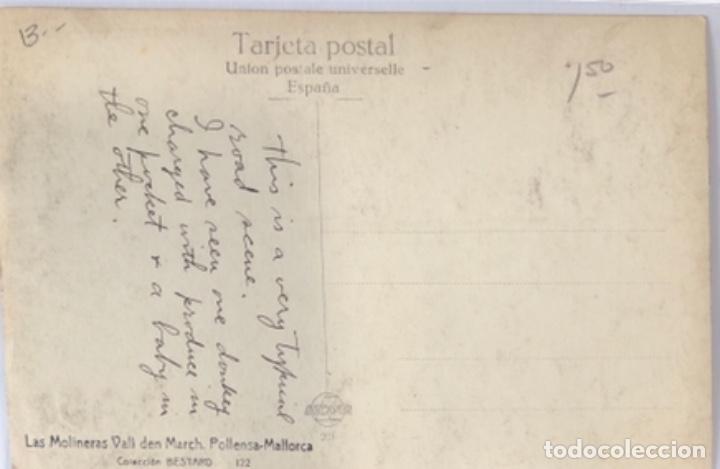 13..
Tarjeta postal
Union postale universelle
España
1,50
This is a very typical
road scene.
I have seen one donkey
charged with produce in
one pocket & a baby in
the other.
Las Molineras Vall den March. Pollensa-Mallorca
Colección BESTARD 122
todocoleccion